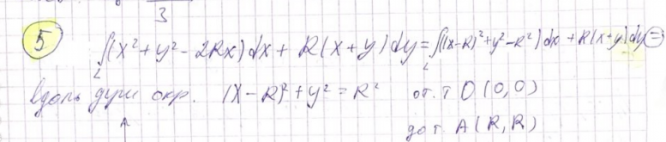 3
5
∫(x²+y²-2Rx)dx + R(x+y)dy = ∫((x-R)²+y²-R²)dx + R(x+y)dy =
L L
вдоль дуги окр. (x-R)²+y²=R² от т О(0,0)
до т A(R,R)